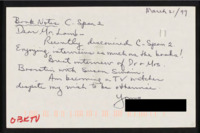 March 21/99
Book Notes C-Span 2
Dear Mr. Lamb-
Recently discovered C-Span 2
Enjoying interviews as much as the books!
Great interview of Dr & Mrs.
with Susan
Am becoming a TV watcher
despite my wish to be otherwise
Yours
OBKTV